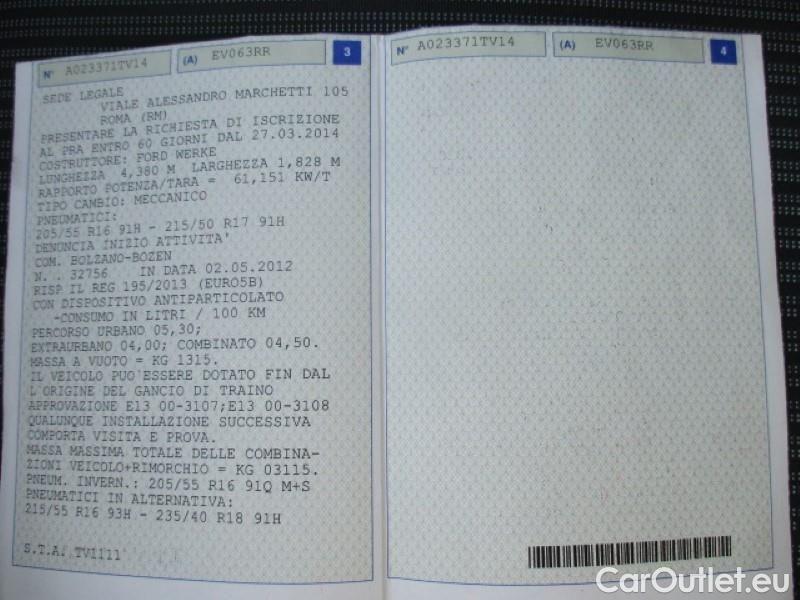 N° A023371TV14 (A) EV063RR 3
SEDE LEGALE
VIALE ALESSANDRO MARCHETTI 105
ROMA (RM)
PRESENTARE LA RICHIESTA DI ISCRIZIONE
AL PRA ENTRO 60 GIORNI DAL 27.03.2014
COSTRUTTORE: FORD WERKE
LUNGHEZZA 4,380 M LARGHEZZA 1,828 M
RAPPORTO POTENZA/TARA = 61,151 KW/T
TIPO CAMBIO: MECCANICO
PNEUMATICI:
205/55 R16 91H - 215/50 R17 91H
DENUNCIA INIZIO ATTIVITA'
COM. BOLZANO-BOZEN
N. . 32756 IN DATA 02.05.2012
RISP IL REG 195/2013 (EURO5B)
CON DISPOSITIVO ANTIPARTICOLATO
-CONSUMO IN LITRI / 100 KM
PERCORSO URBANO 05,30;
EXTRAURBANO 04,00; COMBINATO 04,50.
MASSA A VUOTO = KG 1315.
IL VEICOLO PUO'ESSERE DOTATO FIN DAL
L'ORIGINE DEL GANCIO DI TRAINO
APPROVAZIONE E13 00-3107;E13 00-3108
QUALUNQUE INSTALLAZIONE SUCCESSIVA
COMPORTA VISITA E PROVA.
MASSA MASSIMA TOTALE DELLE COMBINA-
ZIONI VEICOLO+RIMORCHIO = KG 03115.
PNEUM. INVERN.: 205/55 R16 91Q M+S
PNEUMATICI IN ALTERNATIVA:
215/55 R16 93H - 235/40 R18 91H
S.T.A. TV1111
N° A023371TV14 (A) EV063RR 4
CarOutlet.eu